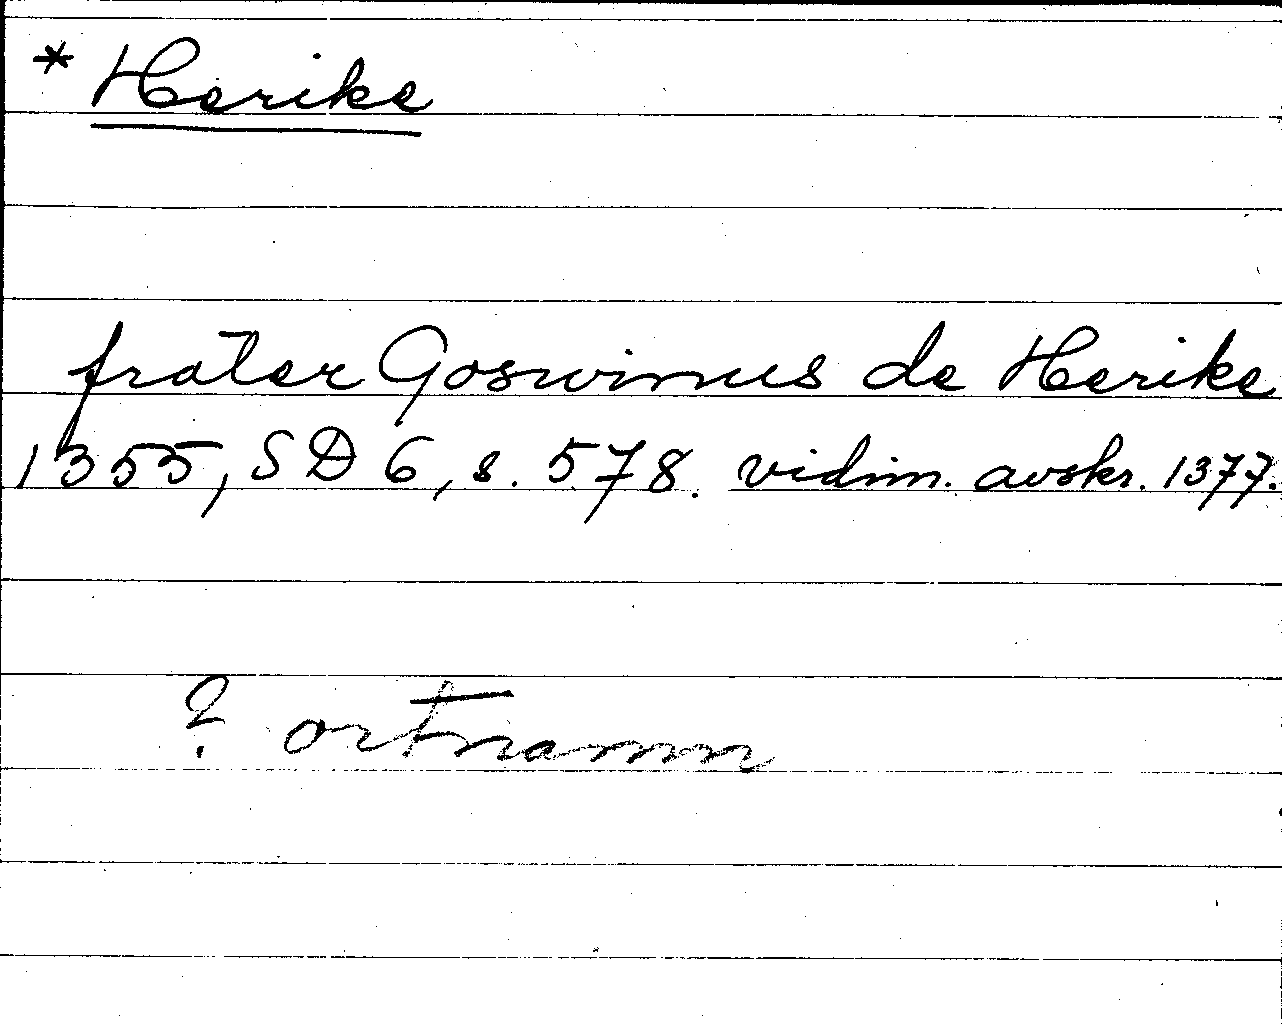 * Herike
frater Goswinus de Herike
1355, SD 6, s. 578. vidim. avskr. 1377.
? ortnamn